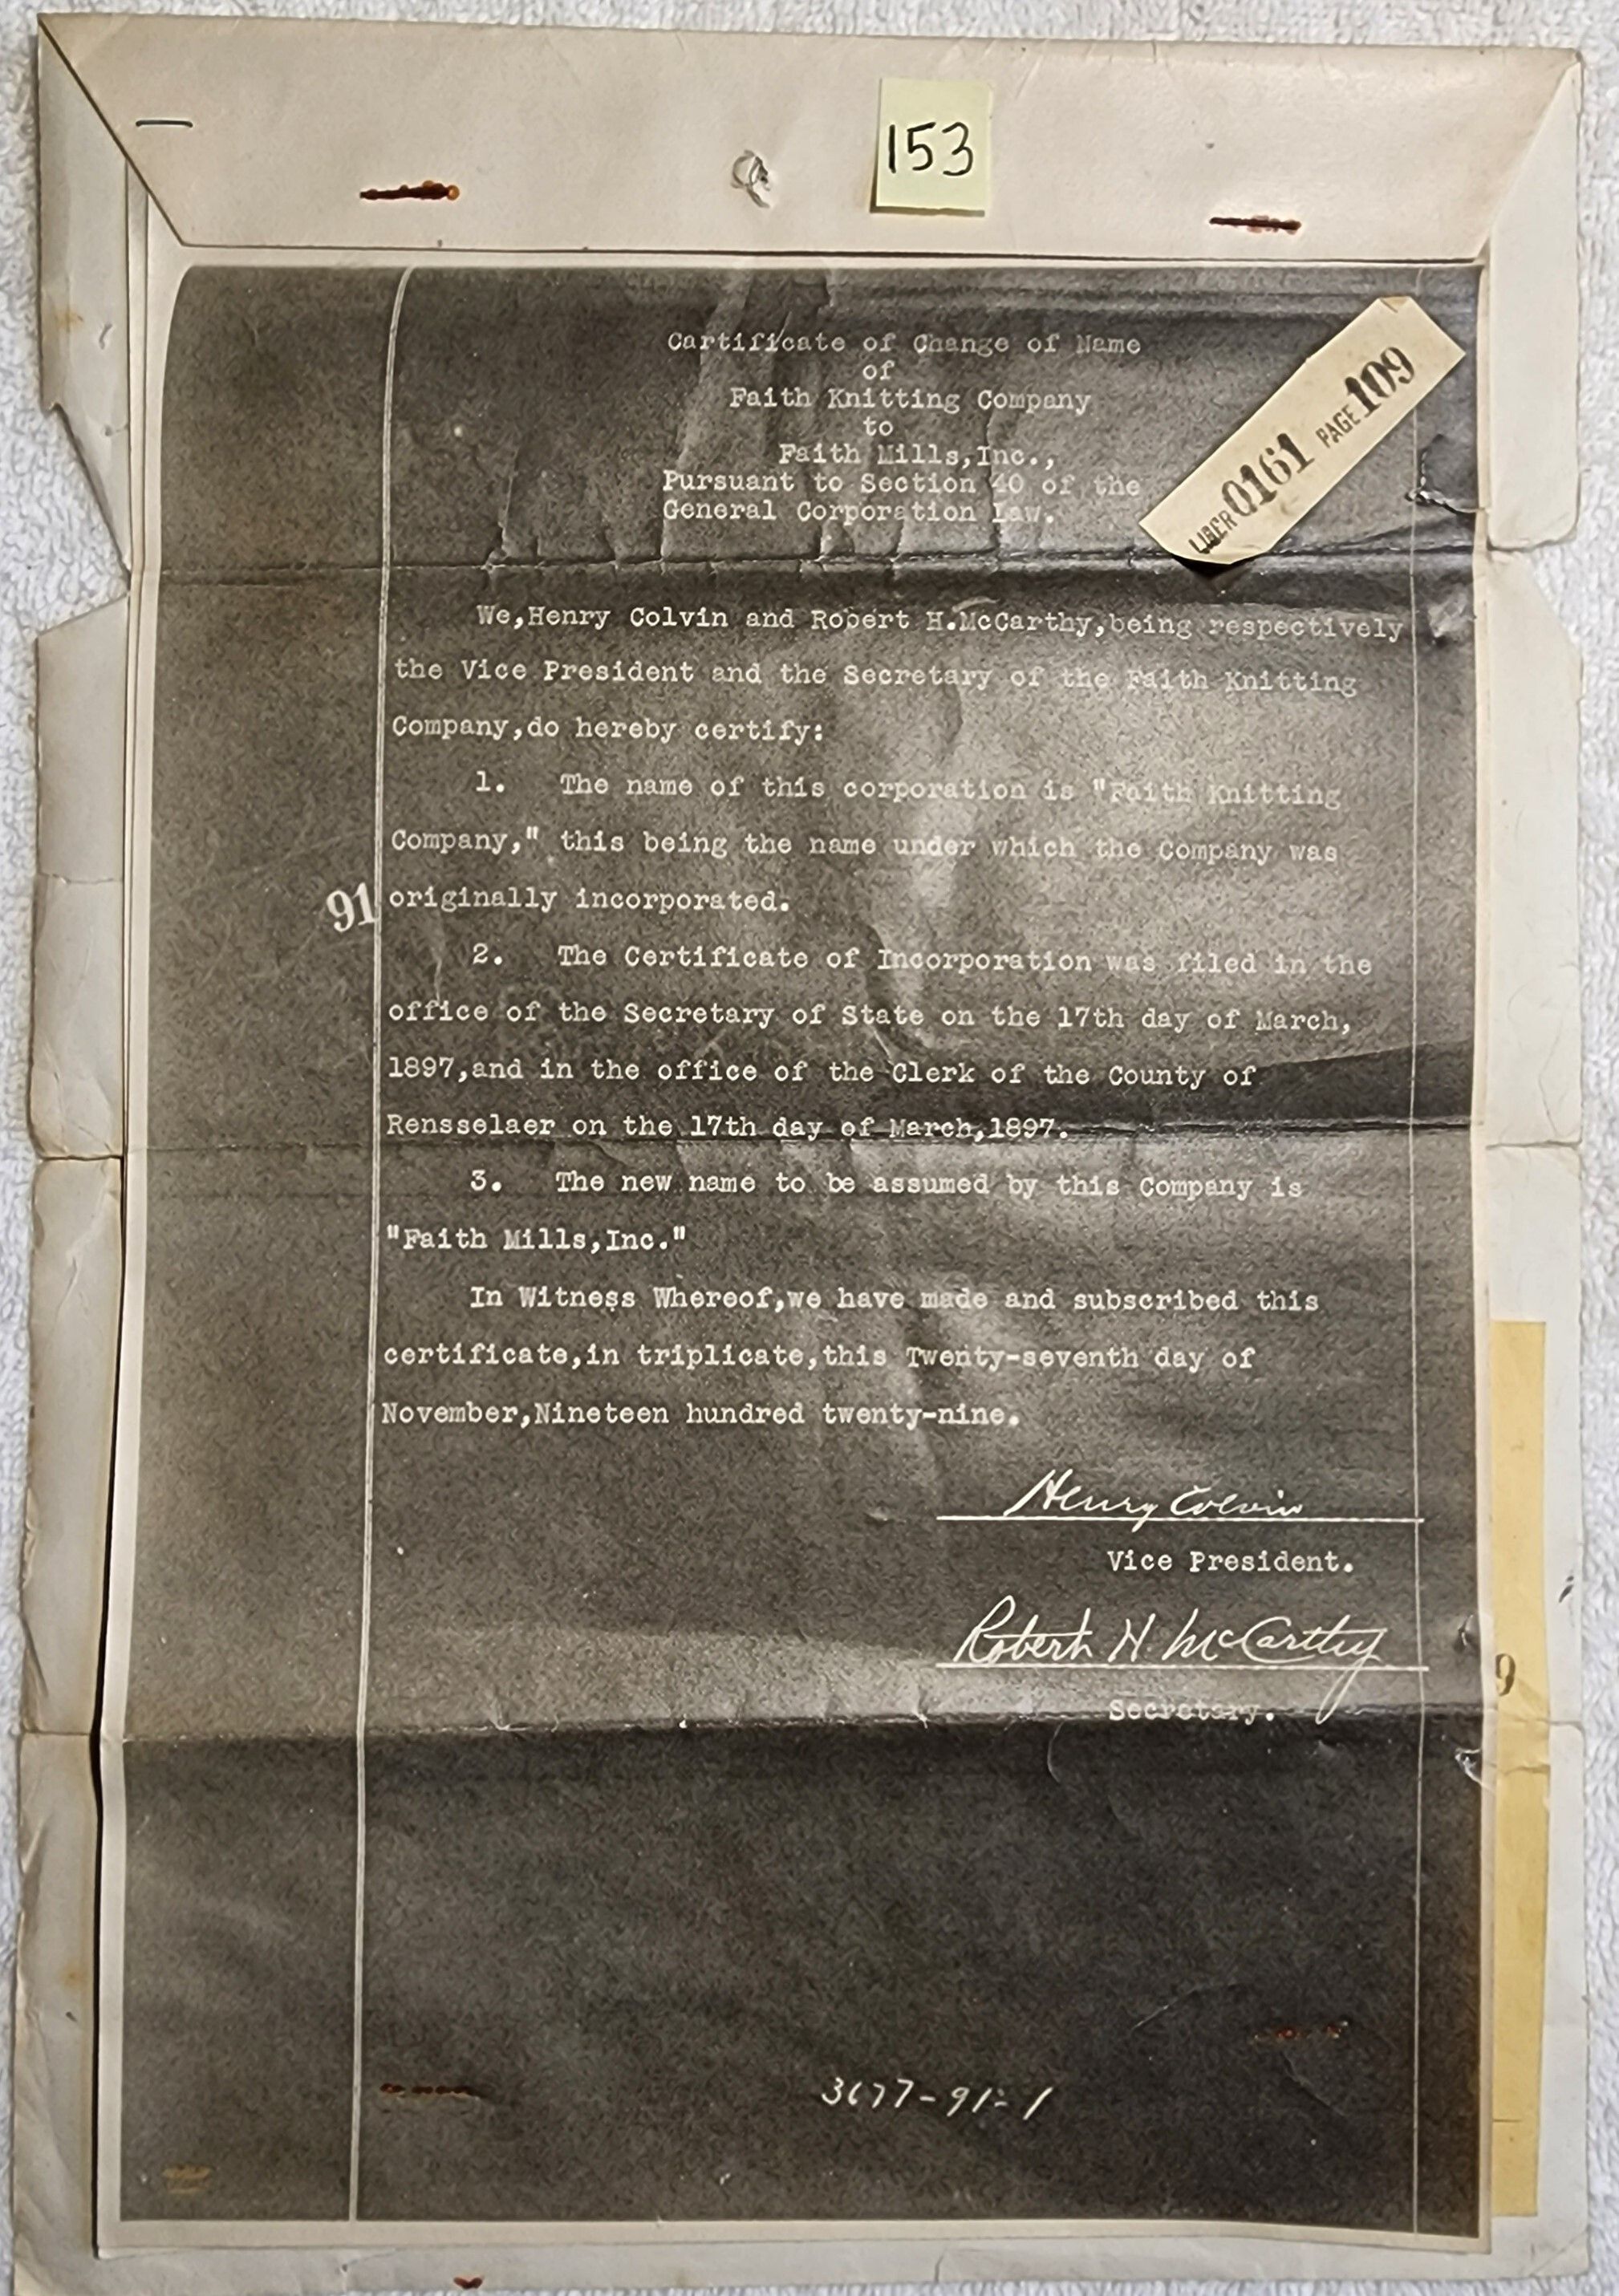 153
Cartificate of Change of Name
of
Faith Knitting Company
to
Faith Mills,Inc.,
Pursuant to Section 40 of the
General Corporation Law.
LIBER 0161 PAGE 109
We,Henry Colvin and Robert H.McCarthy,being respectively
the Vice President and the Secretary of the Faith Knitting
Company,do hereby certify:
1. The name of this corporation is "Faith Knitting
Company," this being the name under which the Company was
originally incorporated.
91
2. The Certificate of Incorporation was filed in the
office of the Secretary of State on the 17th day of March,
1897,and in the office of the Clerk of the County of
Rensselaer on the 17th day of March,1897.
3. The new name to be assumed by this Company is
"Faith Mills,Inc."
In Witness Whereof,we have made and subscribed this
certificate,in triplicate,this Twenty-seventh day of
November,Nineteen hundred twenty-nine.
Henry Colvin
Vice President.
Robert H. McCarthy
Secretary.
9
3677-91-1